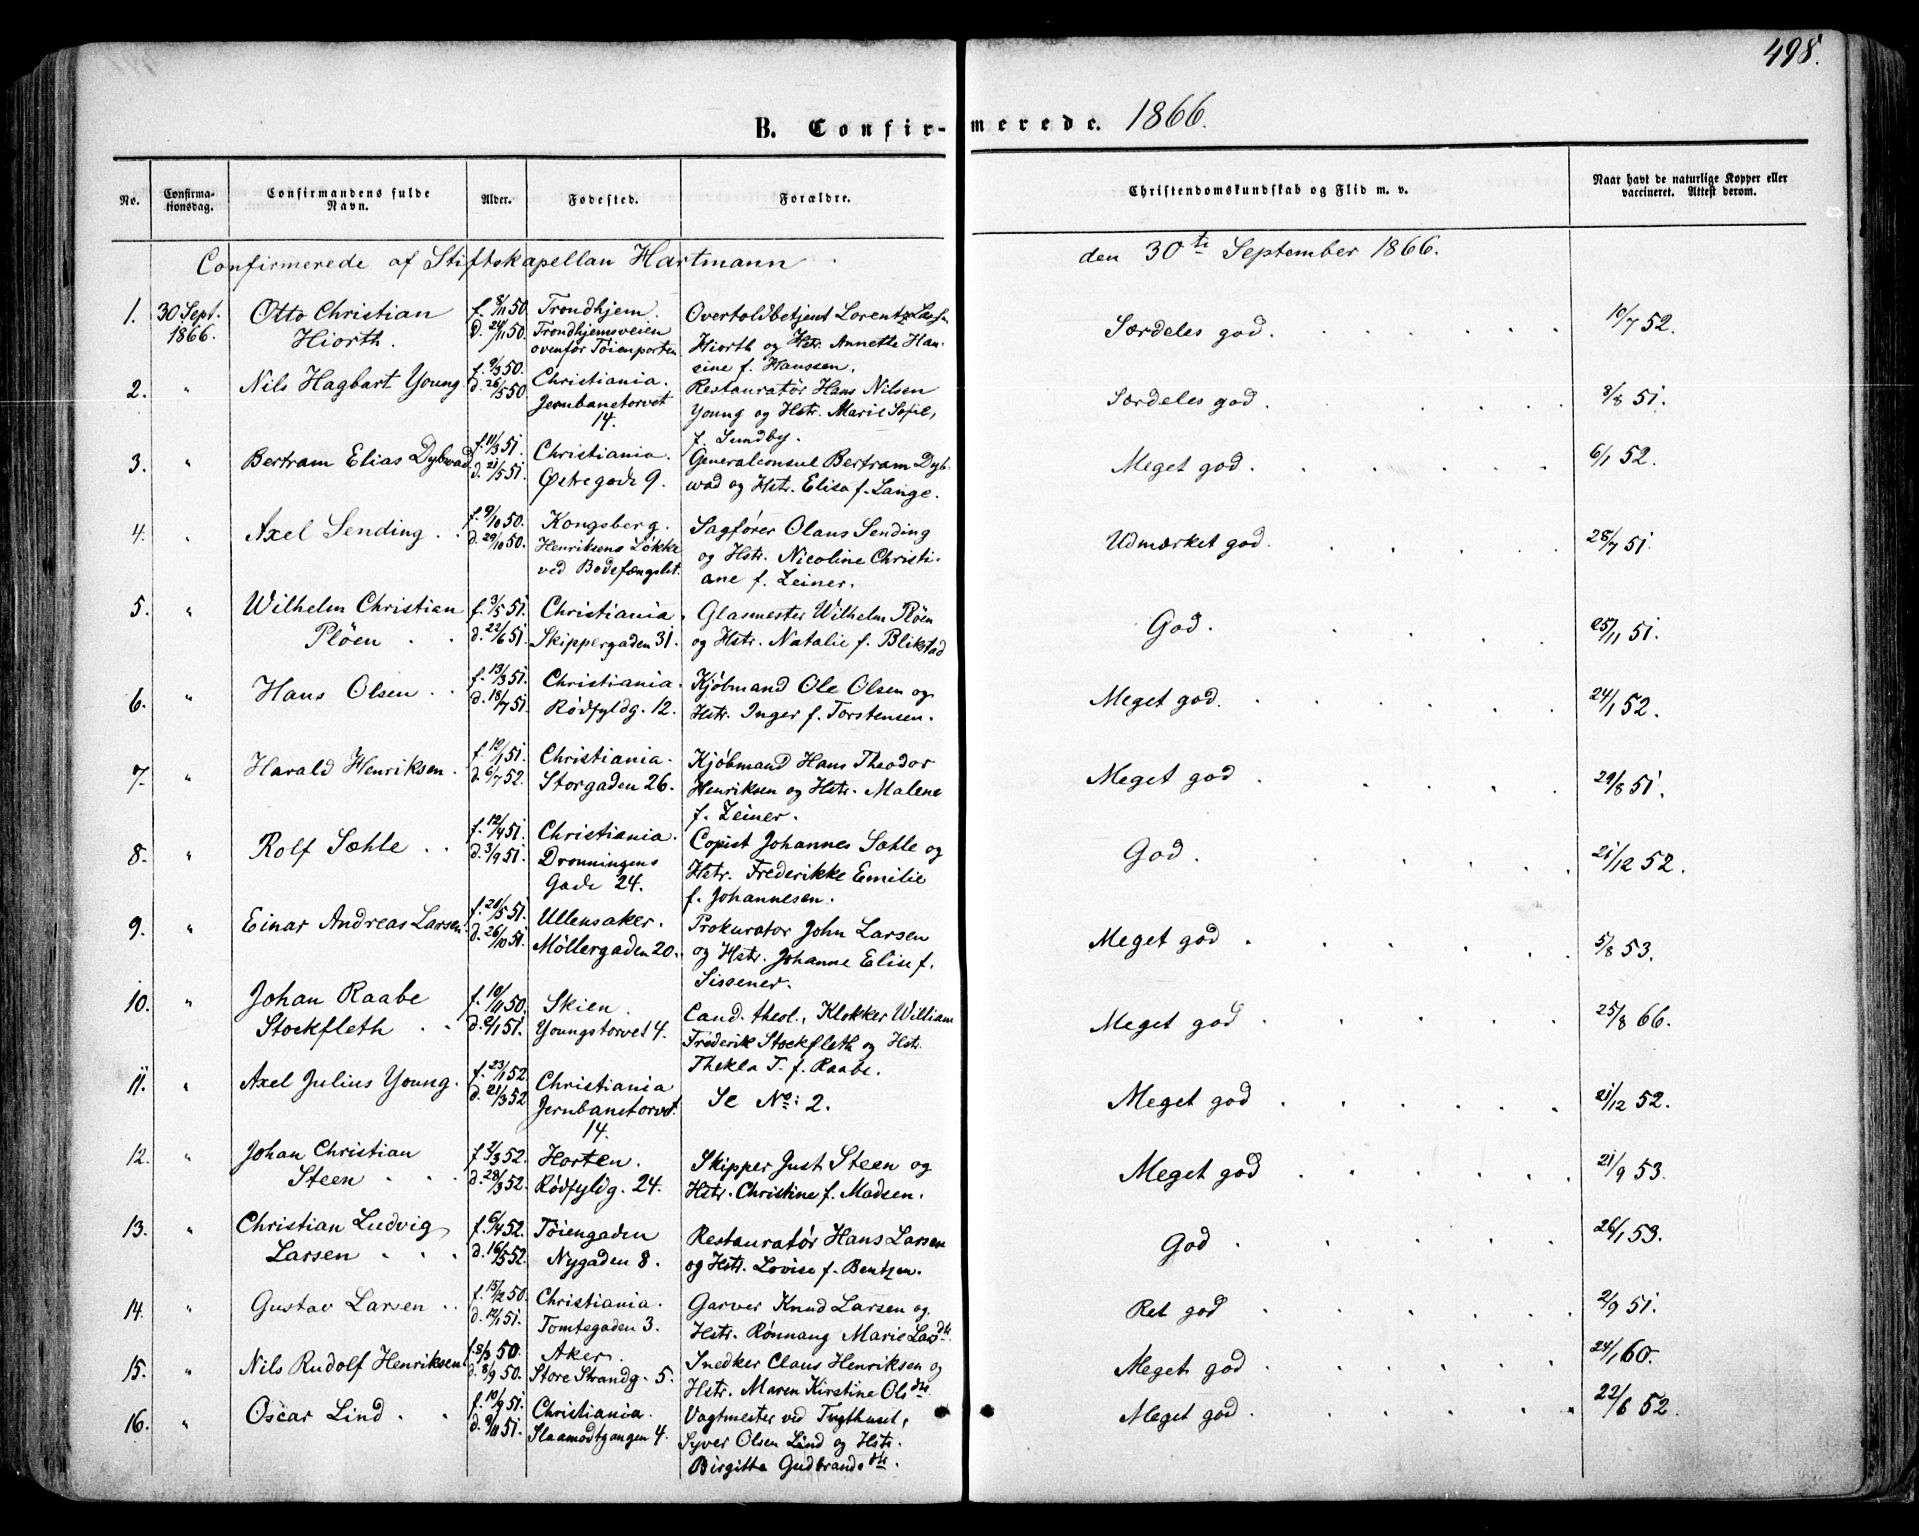 498.
B. Confirmerede. 1866.
No. Confirmationsdag. Confirmandens fulde Navn. Alder. Fødested. Forældre. Christendomskundskab og Flid m. v. Naar havt de naturlige Kopper eller vaccineret. Attest derom.
Confirmerede af Stiftskapellan Hartmann den 30te September 1866.
1. 30 Sept. Otto Christian f. 8/11 50. Trondhjem. Overtoldbetjent Lorentz
1866. Hiorth. d. 24/11 50. Trondhjemsveien Hiorth og Hstr. Annette Han- Særdeles god. 10/7 52.
ovenfor Tøienporten sine f. Hanssen.
2. " Nils Hagbart Young f. 9/3 50. Christiania. Restauratør Hans Nilsen Særdeles god. 3/8 51.
d. 26/5 50 Jernbanetorvet Young og Hstr. Marie Sofie,
14. f. Sundby.
3. " Bertram Elias Dybwad f. 11/3 51. Christiania. Generalconsul Bertram Dyb- Meget god. 6/1 52.
d. 21/5 51. Østregade 9. wad og Hstr. Elise f. Lange.
4. " Axel Sending f. 9/10 50. Kongsberg. Sagfører Olaus Sending Udmærket god. 28/7 51.
d. 29/10 50. Henriksens Løkke og Hstr. Nicoline Christi-
ved Bodsfængslet. ane f. Zeiner.
5. " Wilhelm Christian f. 3/5 51. Christiania. Glasmester Wilhelm Pløen God. 25/11 51.
Pløen d. 22/6 51. Skippergaden 31. og Hstr. Natalie f. Blikstad
6. " Hans Olsen f. 13/3 51. Christiania. Kjøbmand Ole Olsen og Meget god. 24/1 52.
d. 18/7 51. Rødfyldg. 12. Hstr. Inger f. Torstensen.
7. " Harald Henriksen. f. 12/1 51. Christiania. Kjøbmand Hans Theodor Meget god. 29/8 51.
d. 6/7 52. Storgaden 26. Henriksen og Hstr. Malene
f. Zeiner.
8. " Rolf Sæhle f. 12/4 51. Christiania. Copist Johannes Sæhle og God. 21/12 52.
d. 3/9 51. Dronningens Hstr. Frederikke Emilie
Gade 24. f. Johannesen.
9. " Einar Andreas Larsen. f. 20/5 51. Ullensaker. Prokurator John Larsen Meget god. 5/8 53.
d. 26/10 51. Møllergaden 20. og Hstr. Johanne Elise f.
Sissener.
10. " Johan Raabe f. 10/11 50. Skien. Cand. theol., Klokker William Meget god. 25/8 66.
Stockfleth d. 9/1 51. Youngstorvet 4. Frederik Stockfleth og Hstr.
Thekla T. f. Raabe.
11. " Axel Julius Young. f. 23/1 52. Christiania Se No: 2. Meget god. 21/12 52.
d. 21/3 52 Jernbanetorvet
14.
12. " Johan Christian f. 2/3 52. Horten. Skipper Just Steen og Meget god. 21/9 53.
Steen d. 28/3 52. Rødfyldg. 24. Hstr. Christine f. Madsen.
13. " Christian Ludvig f. 6/4 52. Tøiengaden Restauratør Hans Larsen God. 26/1 53.
Larsen d. 16/5 52. Nygaden 8. og Hstr. Lovise f. Bentzen.
14. " Gustav Larsen f. 15/12 50. Christiania. Garver Knud Larsen og Ret god. 2/9 51.
d. 12/1 51. Tomtegaden 3. Hstr. Rønnaug Marie Larsdtr.
15. " Nils Rudolf Henriksen f. 8/3 50. Aker. Snedker Claus Henriksen og Meget god. 24/1 60.
d. 8/9 50. Store Strandg. 5. Hstr. Maren Kirstine Olsdtr.
16. " Oscar Lind f. 10/9 51. Christiania. Vagtmester ved Tugthuset, Meget god. 22/6 52.
d. 9/11 51. Slaamodtgangen 4. Syver Olsen Lind og Hstr.
Birgitte Gudbrandsdtr.